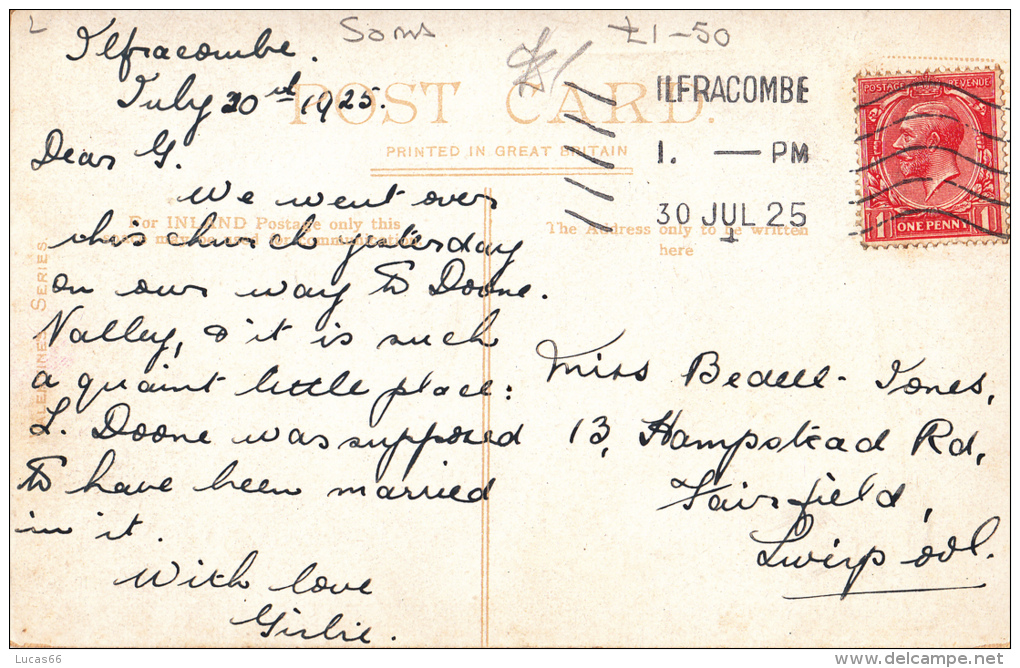 Soms
£1-50
Ilfracombe.
July 30th 1925.
POST CARD.
PRINTED IN GREAT BRITAIN
For INLAND Postage only this
space may be used for communication
The Address only to be written
here
VALENTINES SERIES
ILFRACOMBE
1. — PM
30 JUL 25
POSTAGE REVENUE
1 ONE PENNY 1
Dear G.
We went over
this church yesterday
on our way to Doone.
Valley, & it is such
a quaint little place:
L. Doone was supposed
to have been married
in it.
With love
Girlie.
Miss Bedell-Jones,
13, Hampstead Rd,
Fairfield,
Liverpool.
Lucas66
http://www.delcampe.net